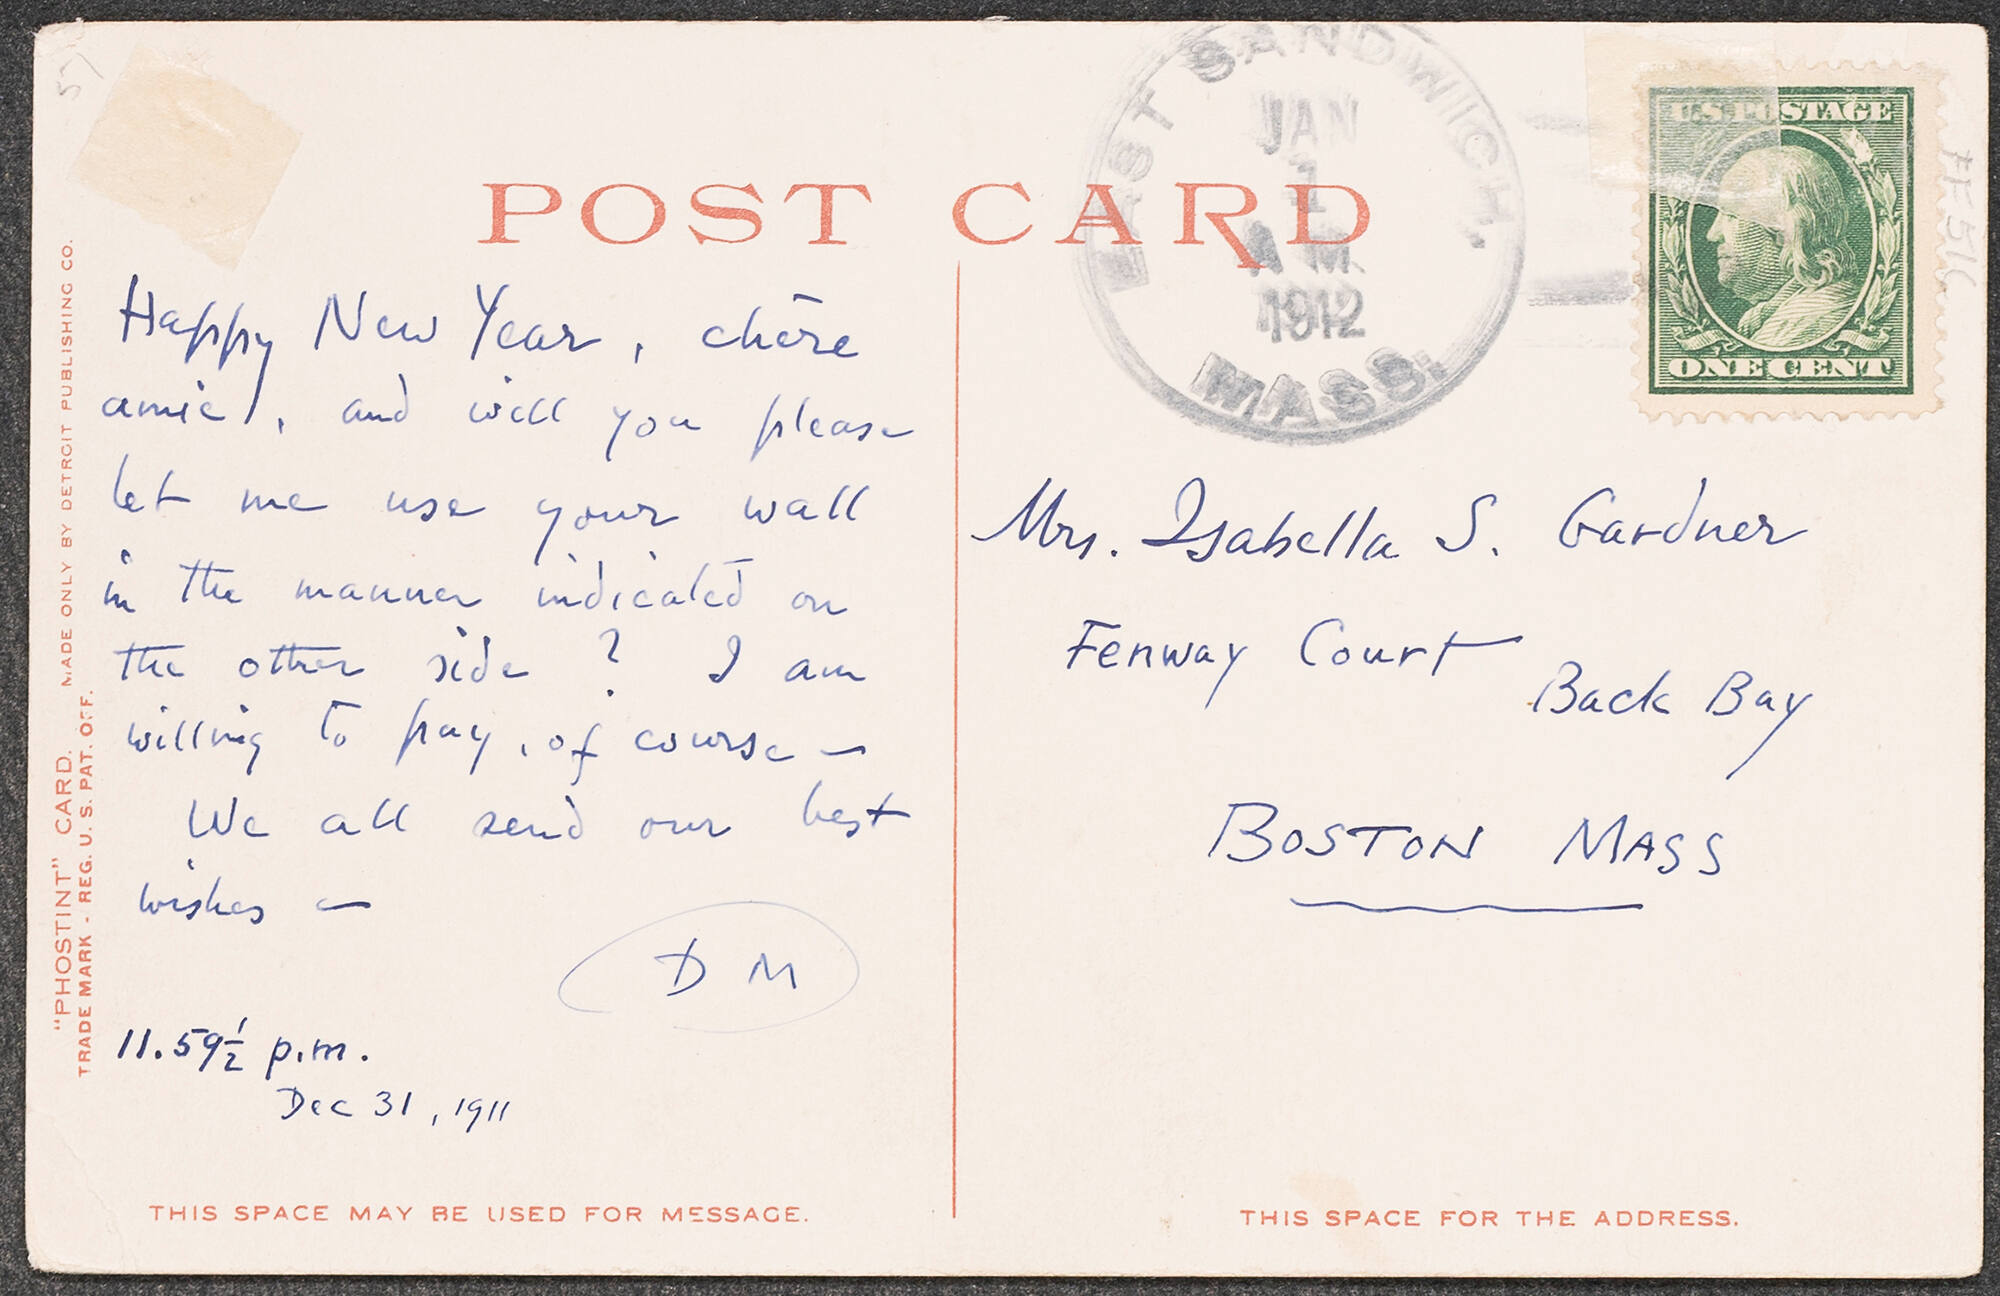 57
POST CARD
EAST SANDWICH,
JAN
1
A M.
1912
MASS.
U.S. POSTAGE
ONE CENT
Happy New Year, chère
amie, and will you please
let me use your wall
in the manner indicated on
the other side? I am
willing to pay, of course —
We all send our best
wishes —
D M
11.59½ p.m.
Dec 31, 1911
Mrs. Isabella S. Gardner
Fenway Court
Back Bay
BOSTON MASS
THIS SPACE MAY BE USED FOR MESSAGE.
THIS SPACE FOR THE ADDRESS.
"PHOSTINT" CARD. MADE ONLY BY DETROIT PUBLISHING CO.
TRADE MARK - REG. U. S. PAT. OFF.